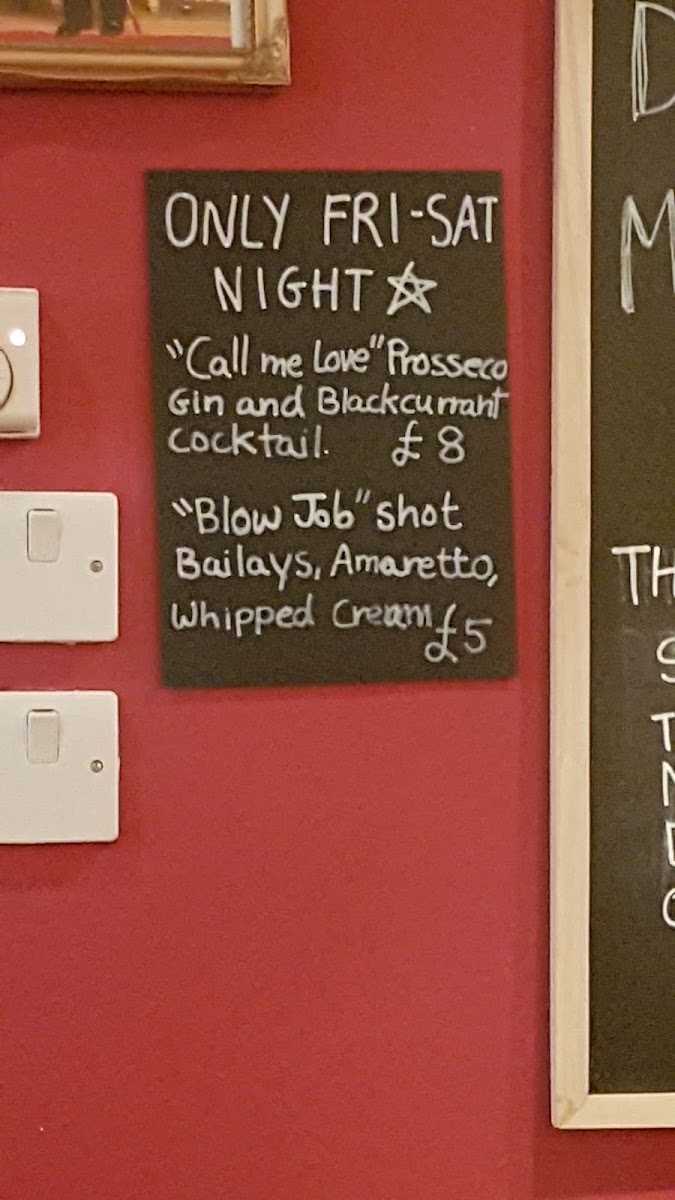 ONLY FRI-SAT
NIGHT
"Call me Love" Prosseco
Gin and Blackcurrant
Cocktail. £8
"Blow Job" shot
Bailays, Amaretto,
Whipped Cream £5
D
M
TH
S
T
N